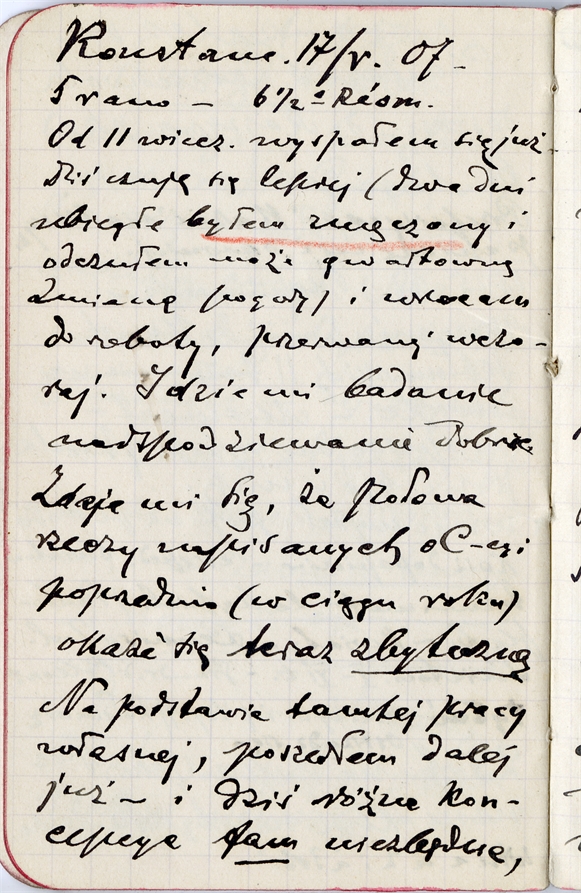 Konstanc. 17/V. 07 –
5 rano – 6½ ² Réom.
Od 11 wiecz. wyspałem się już
Dziś czuję się lepiej (dwa dni
ubiegłe byłem zmęczony i
odczułem może gwałtowną
zmianę pogody) i wracam
do roboty, przerwanej wczo-
raj. Idzie mi badanie
nadspodziewanie dobrze
Zdaje mi się, że połowa
rzeczy napisanych o C-czi
poprzednio (w ciągu roku)
okaże się teraz zbyteczną
Na podstawie tamtej pracy
własnej, poszedłem dalej
już – i dziś różne kon-
cepcye tam niezbędne,